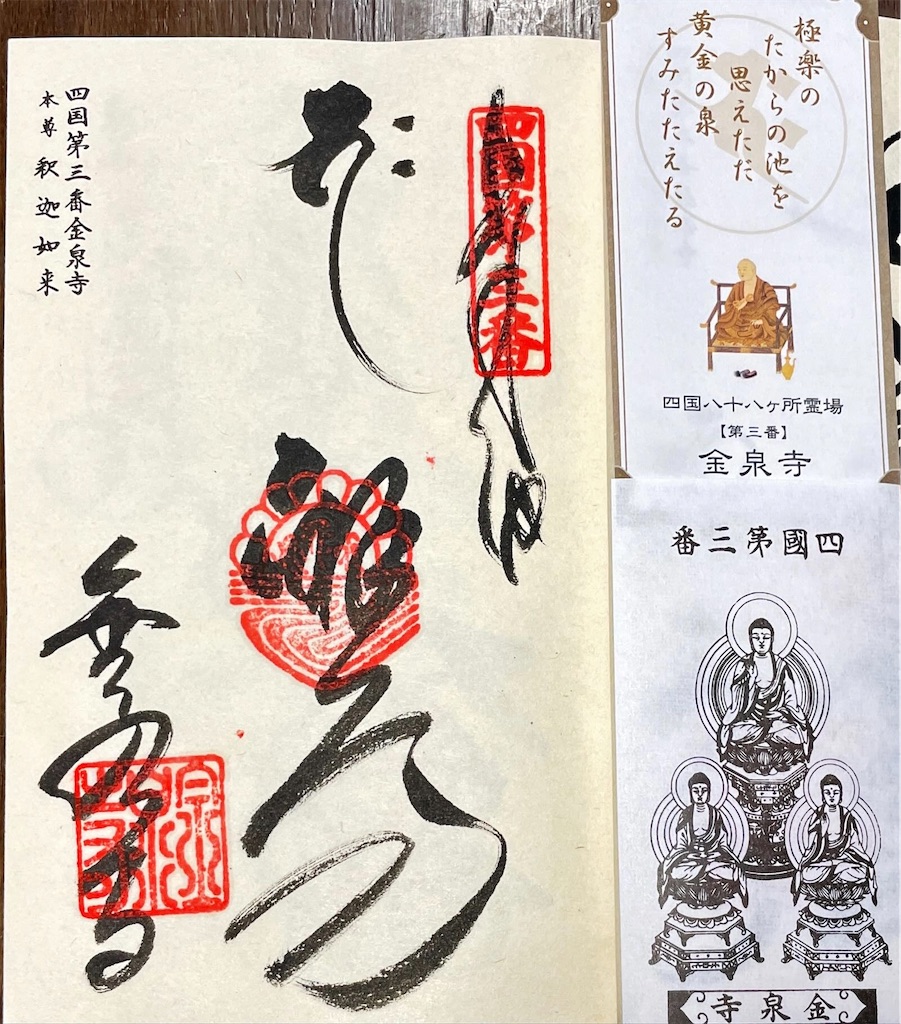 極楽の
たからの池を
思えただ
黄金の泉
すみたたえたる
四国八十八ヶ所霊場
【第三番】
金泉寺
四國第三番
金泉寺
四国第三番
四国第三番金泉寺
本尊 釈迦如来